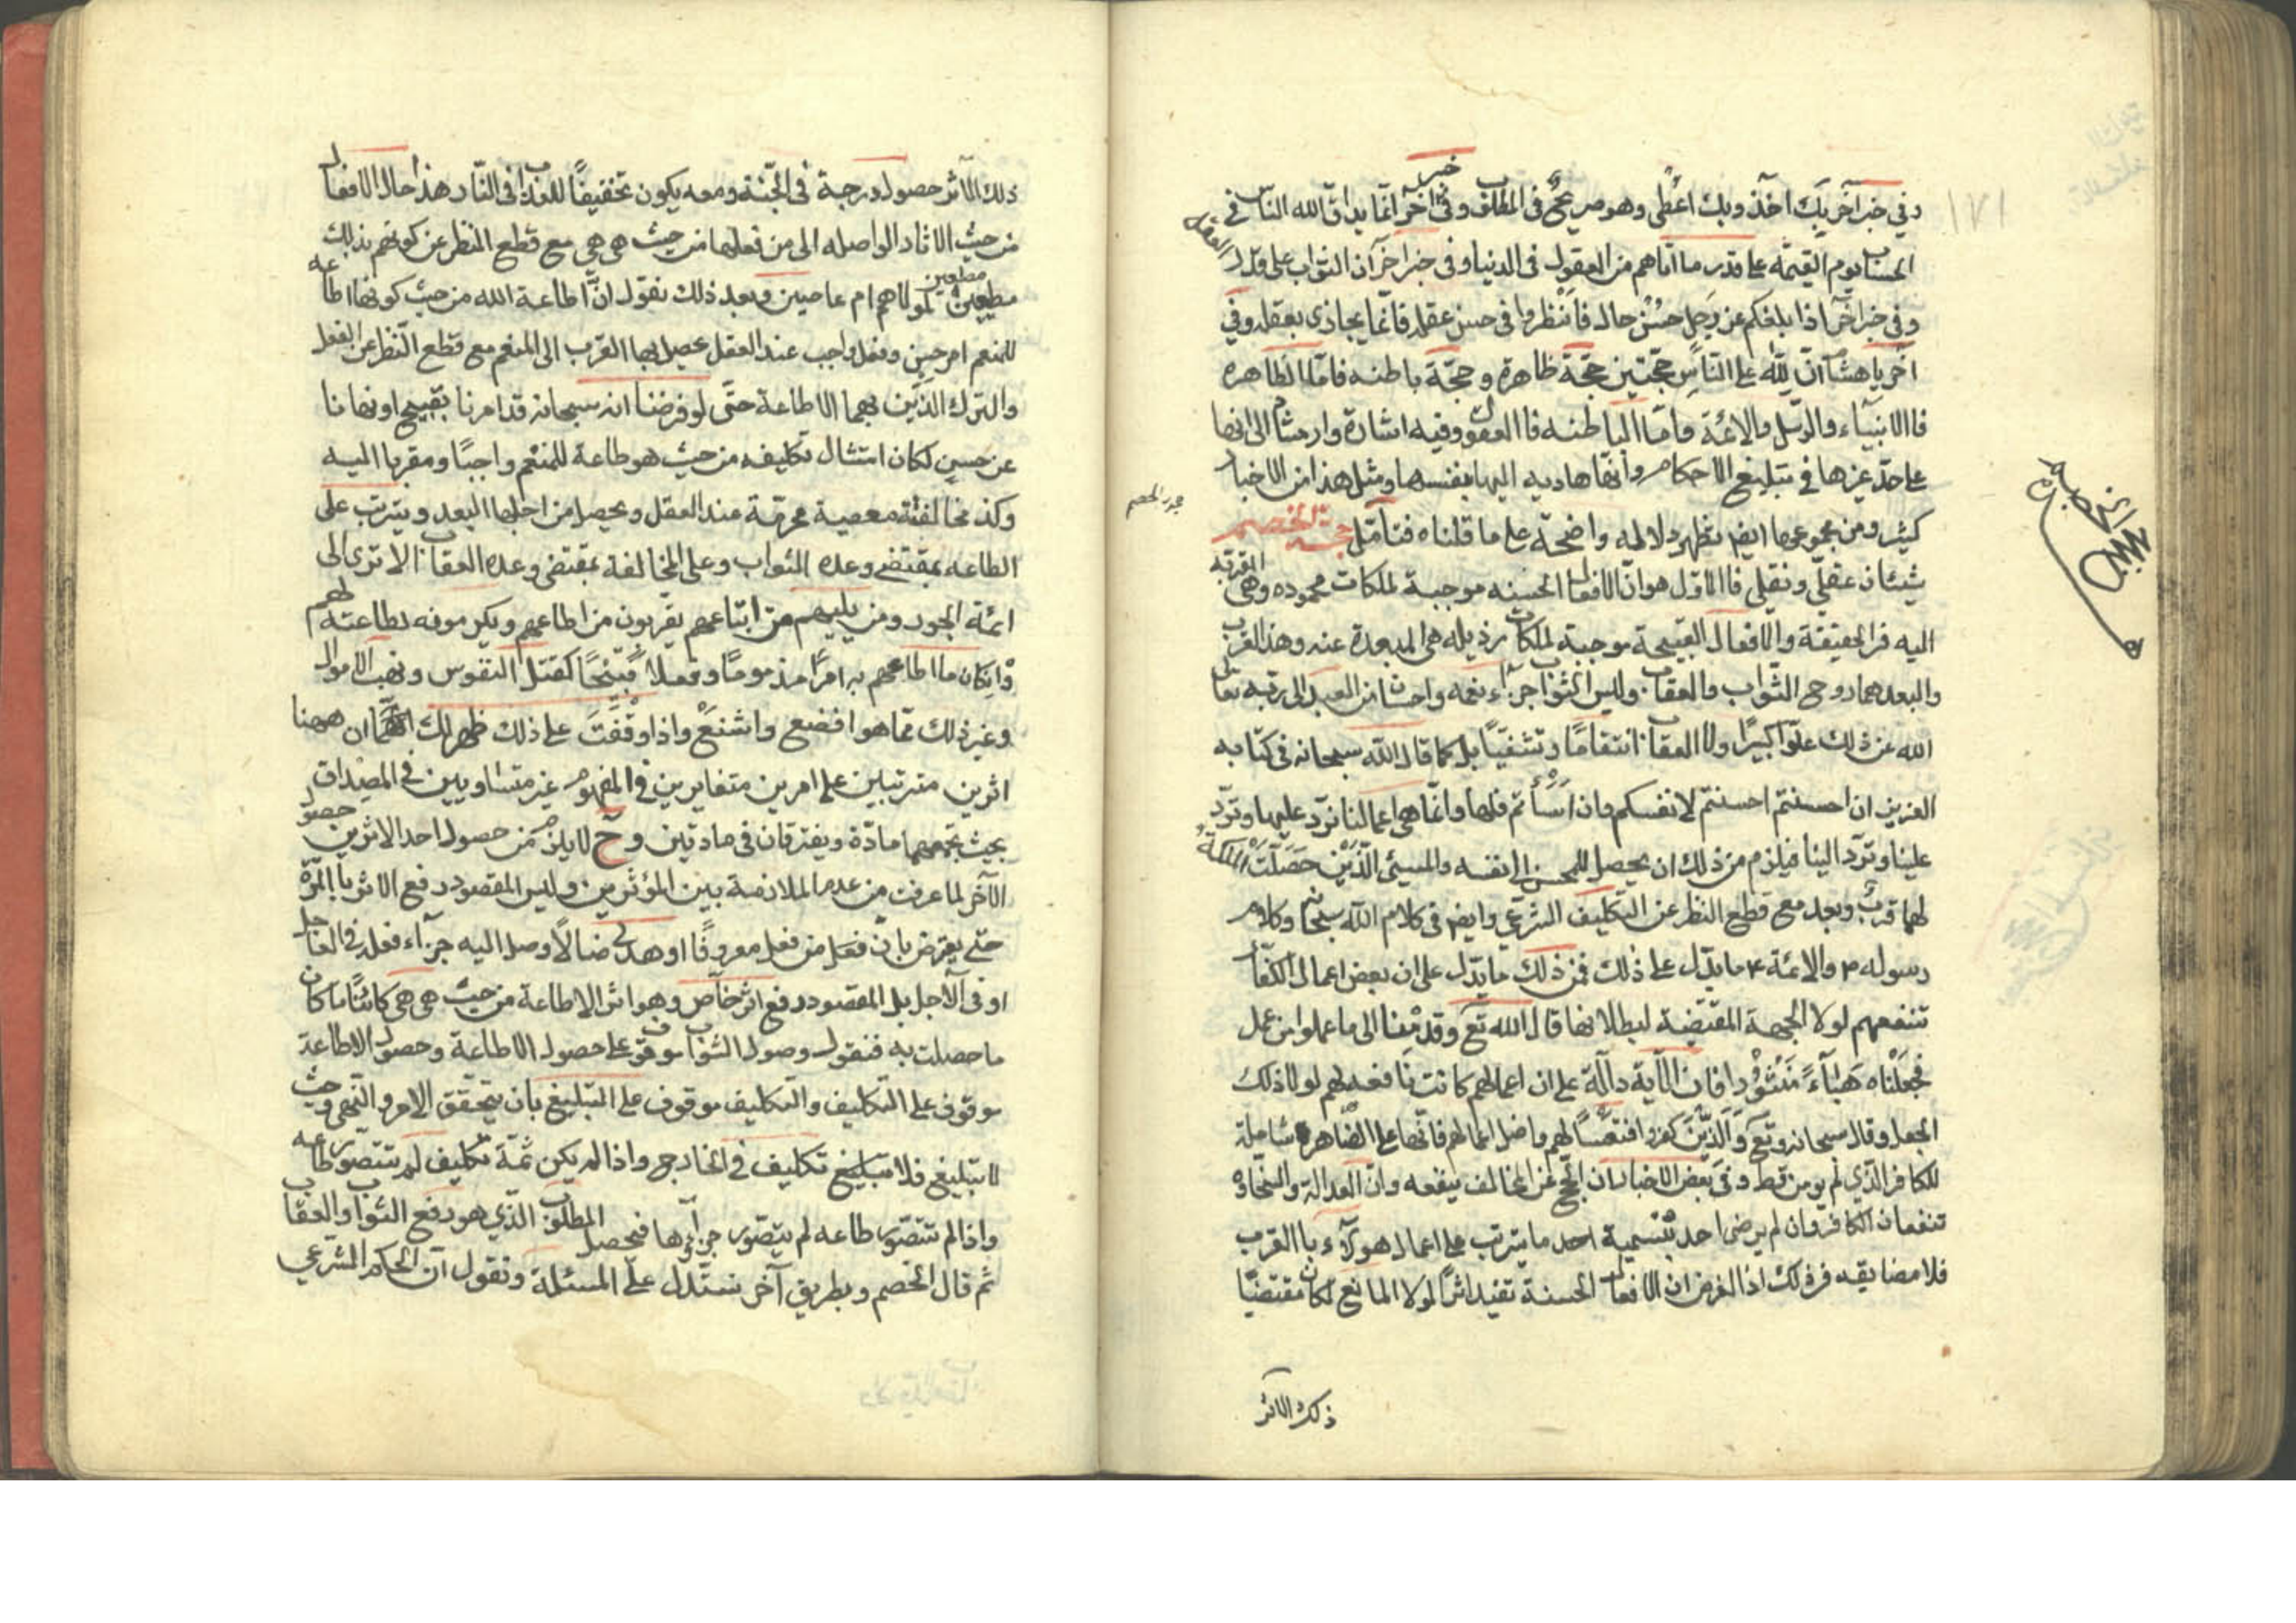 وفي خبر آخر بك آخذ وبك اعطى وهو صريح في المطلب وفي خبر آخر انما يداق الله الناس في
الحساب يوم القيمة على قدر ما اتاهم من العقول في الدنيا وفي خبر آخر ان الثواب على قدر العقل
وفي خبر آخر اذا بلغكم عن رجل حسن حال فانظروا في حسن عقله فانما يجازى بعقله وفي
آخر يا هشام ان لله على الناس حجتين حجة ظاهرة وحجة باطنه فاما الظاهره
فاالانبياء والرسل والائمة واما الباطنه فاالعقول وفيه اشارة وارشاد الى انها
على حد غيرها في تبليغ الاحكام وانها هاديه اليها بنفسها ومثل هذا من الاخبار
كثير ومن مجموعها ايضا يظهر دلاله واضحة على ما قلناه فتأمل حجة الخصم
شيئان عقلي ونقلي فاالاول هو ان الافعال الحسنه موجبة لملكات محموده وهي المقربه
اليه في الحقيقة والافعال القبيحة موجبة لملكات رذيله هي المبعدة عنه وهذا القرب
والبعد هما روح الثواب والعقاب وليس الثواب جزاء نعمه واحسان من العبد الى ربه تعالى
الله عن ذلك علوا كبيرا ولا العقاب انتقاما وتشفيا بل كما قال الله سبحانه في كتابه
العزيز ان احسنتم احسنتم لانفسكم وان اسأتم فلها وانما هي اعمالنا نرد عليها وترد
علينا وترد الينا فيلزم من ذلك ان يحصل للمحسن الى نفسه والمسيئ الذين حصلت الملكة
لهما قرب وبعد مع قطع النظر عن التكليف الشرعي وايضا في كلام الله سبحانه وكلام
رسوله ص والائمة ع ما يدل على ذلك فمن ذلك ما يدل على ان بعض اعمال الكفار
تنفعهم لولا الجهة المقتضية لبطلانها قال الله تع وقدمنا الى ما عملوا من عمل
فجعلناه هباء منثورا فان الآية دالة على ان اعمالهم كانت نافعة لهم لولا ذلك
الجعل وقال سبحانه وتع والذين كفروا فتعسا لهم واضل اعمالهم فانها على الظاهر شاملة
للكافر الذي لم يومن قط وفي بعض الاخبار ان الحج عن المخالف ينفعه وان العدالة والسخاوة
تنفعان الكافر وان لم يرض احد بتسمية احد ما يترتب على اعمال هولاء باالقرب
فلا مضايقه في ذلك اذا الغرض ان الافعال الحسنة تفيد اثرا لولا المانع لكان مقتضيا
ذلك الاثر
ذلك الآثر حصول درجة في الجنة ومعه يكون تخفيفا للعذاب في النار هذا حال الافعال
من حيث الاثار الواصله الى من فعلها من حيث هي هي مع قطع النظر عن كونهم بذلك
مطيعين لمولاهم ام عاصين وبعد ذلك نقول ان اطاعة الله من حيث كونها اطاعه
للمنعم امر حسن وفعل واجب عند العقل يحصل بها القرب الى المنعم مع قطع النظر عن الفعل
والترك الذين بهما الاطاعة حتى لو فرضنا انه سبحانه قد امرنا بقبيح او نهانا
عن حسن لكان امتثال تكليفه من حيث هو طاعة للمنعم واجبا ومقربا اليه
وكذ مخالفته معصية محرمة عند العقل ويحصل من اجلها البعد ويترتب على
الطاعه بمقتضى وعده الثواب وعلى المخالفة بمقتضى وعده العقاب الا ترى الى
ائمة الجور ومن يليهم من اتباعهم يقربون من اطاعهم ويكرمونه لطاعته لهم
وان كان ما اطاعهم به امرا مذموما وفعلا قبيحا كقتل النفوس ونهب الاموال
وغير ذلك مما هو افضع واشنع واذا وقفت على ذلك ظهر لك ان ههنا
اثرين مترتبين على امرين متغايرين في المفهوم غير متساويين في المصداق
بحيث يجمعهما مادة ويفترقان في مادتين وح لا يلزم من حصول احد الاثرين حصول
الآخر لما عرفت من عدم الملازمة بين المؤثرين وليس المقصود رفع الاثر باالمرة
حتى يعترض بان فعل من فعل معروفا او هدى ضالا وصل اليه جزاء فعله في العاجل
او في الآجل بل المقصود رفع اثر خاص وهو اثر الاطاعة من حيث هي هي كائنا ما كان
ما حصلت به فنقول وصول الثواب موقوف على حصول الاطاعة وحصول الاطاعة
موقوف على التكليف والتكليف موقوف على التبليغ بان يتحقق الامر والنهي وحيث
لا تبليغ فلا تكليف في الخارج واذا لم يكن ثمة تكليف لم تتصور طاعه
واذا لم تتصور طاعه لم يتصور جزاؤها فيحصل المطلوب الذي هو رفع الثواب والعقاب
ثم قال الخصم وبطريق آخر نستدل على المسئلة ونقول ان الحكم الشرعي